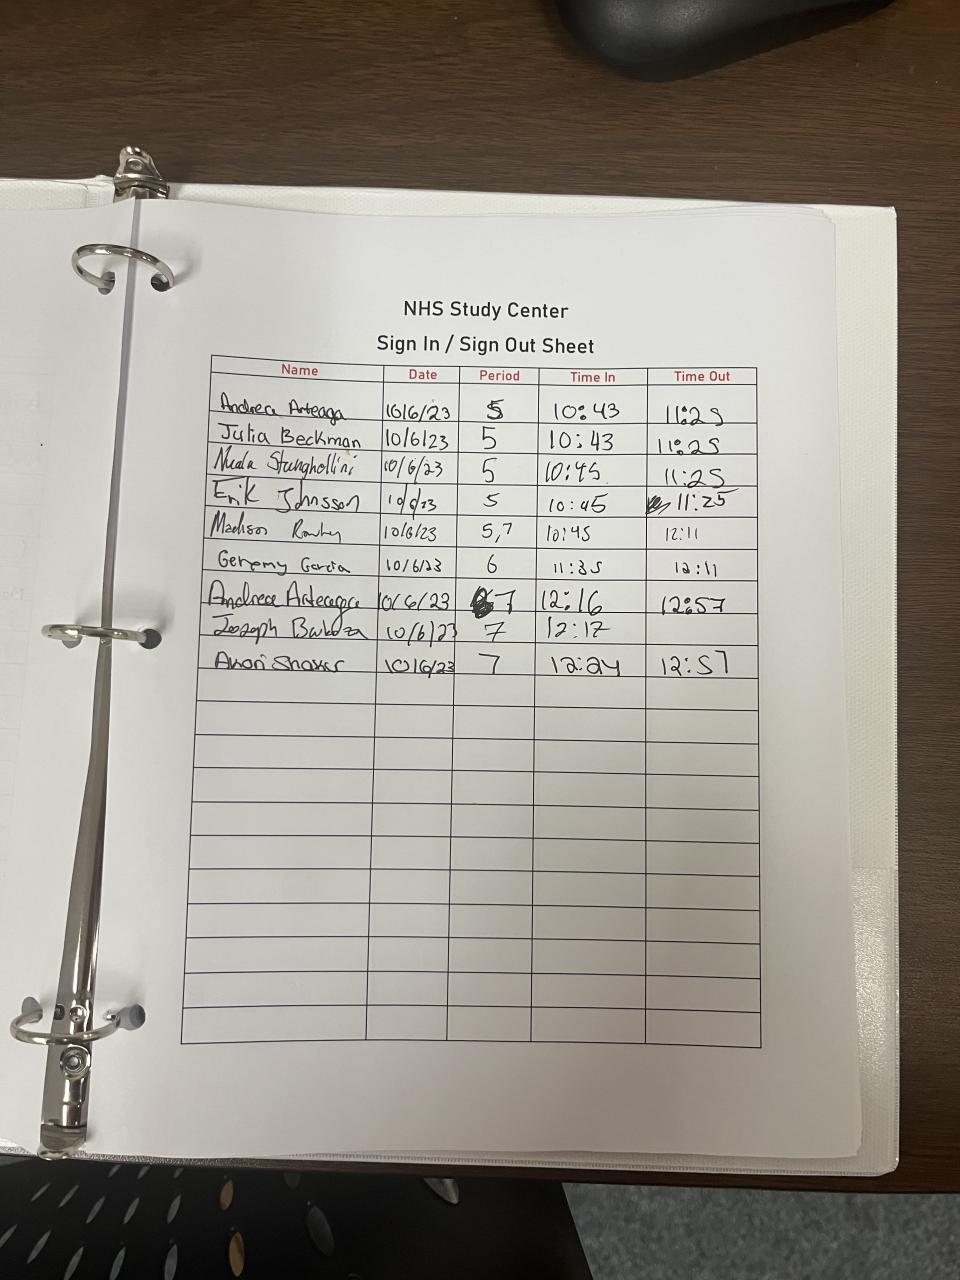 NHS Study Center
Sign In / Sign Out Sheet
Name Date Period Time In Time Out
Andrea Arteaga 10/6/23 5 10:43 11:25
Julia Beckman 10/6/23 5 10:43 11:25
Nuala 10/6/23 5 10:45 11:25
Erik Johnsson 10/6/23 5 10:45 11:25
Madison 10/6/23 5,7 10:45 12:11
Geremy Garcia 10/6/23 6 11:35 12:11
Andrea Arteaga 10/6/23 7 12:16 12:57
Joseph Barboza 10/6/23 7 12:17
10/6/23 7 12:24 12:57